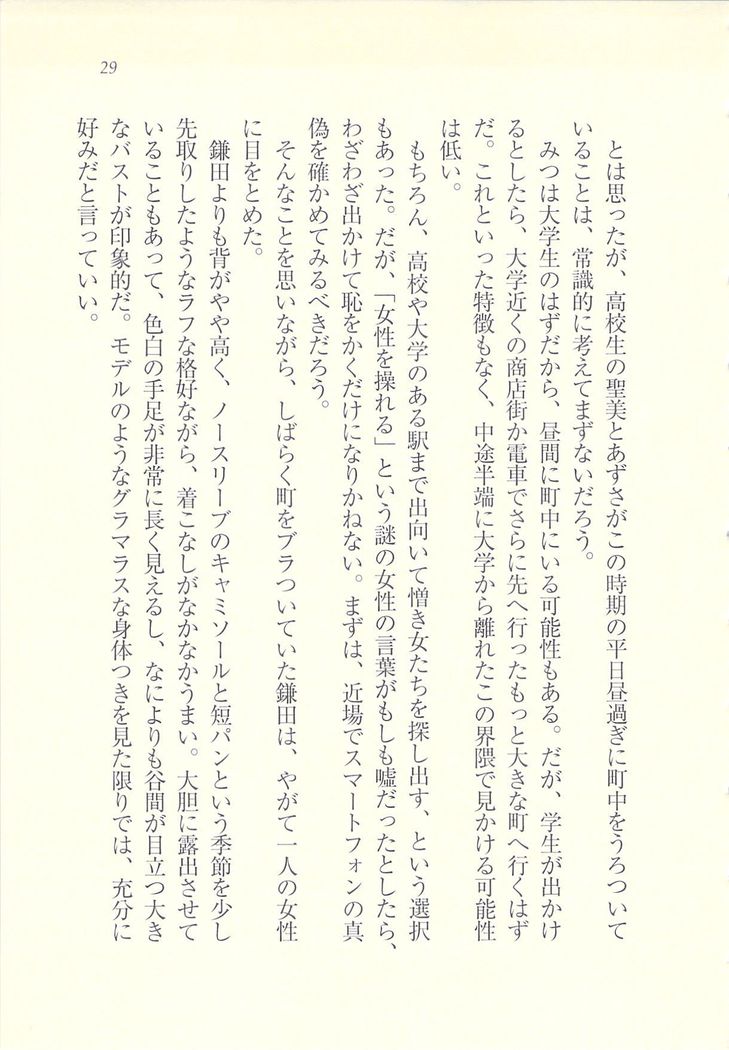 29
とは思ったが、高校生の聖美とあずさがこの時期の平日昼過ぎに町中をうろついて
いることは、常識的に考えてまずないだろう。
みつは大学生のはずだから、昼間に町中にいる可能性もある。だが、学生が出かけ
るとしたら、大学近くの商店街か電車でさらに先へ行ったもっと大きな町へ行くはず
だ。これといった特徴もなく、中途半端に大学から離れたこの界隈で見かける可能性
は低い。
もちろん、高校や大学のある駅まで出向いて憎き女たちを探し出す、という選択
もあった。だが、「女性を操れる」という謎の女性の言葉がもしも嘘だったとしたら、
わざわざ出かけて恥をかくだけになりかねない。まずは、近場でスマートフォンの真
偽を確かめてみるべきだろう。
そんなことを思いながら、しばらく町をブラついていた鎌田は、やがて一人の女性
に目をとめた。
鎌田よりも背がやや高く、ノースリーブのキャミソールと短パンという季節を少し
先取りしたようなラフな格好ながら、着こなしがなかなかうまい。大胆に露出させて
いることもあって、色白の手足が非常に長く見えるし、なによりも谷間が目立つ大き
なバストが印象的だ。モデルのようなグラマラスな身体つきを見た限りでは、充分に
好みだと言っていい。